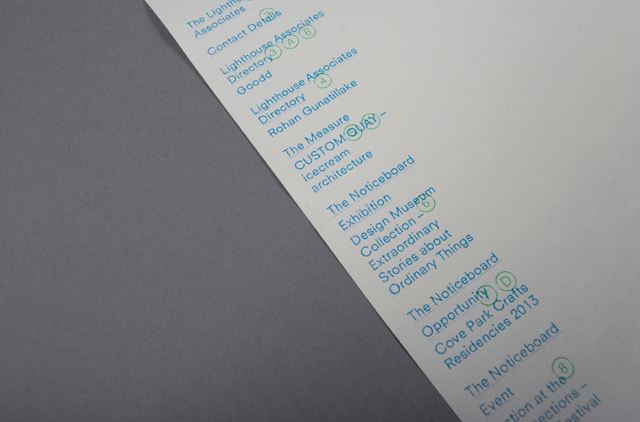 The Lighthouse
Associates
Contact Details 2
Lighthouse Associates
Directory 3 A B
Goodd
Lighthouse Associates
Directory 4
Rohan Gunatillake
The Measure
CUSTOM QUAY –
icecream
architecture
The Noticeboard
Exhibition
Design Museum
Collection – 6
Extraordinary
Stories about
Ordinary Things
The Noticeboard
Opportunity D
Cove Park Crafts
Residencies 2013
The Noticeboard
Event 8
ction at the
ections –
estival